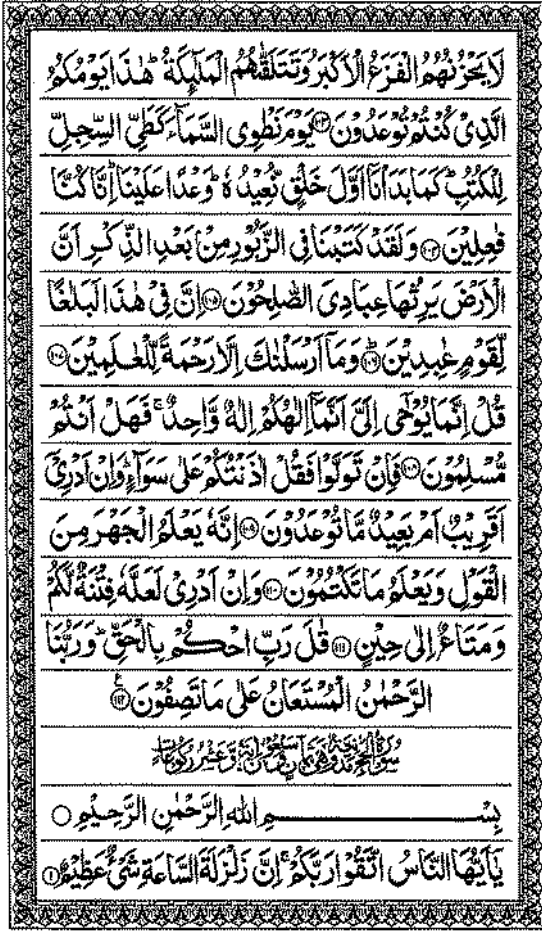 لَا يَحْزُنُهُمُ الْفَزَعُ الْاَكْبَرُ وَتَتَلَقّٰىهُمُ الْمَلٰٓئِكَةُ ؕ هٰذَا يَوْمُكُمُ
الَّذِىْ كُنْتُمْ تُوْعَدُوْنَ ﴿۱۰۳﴾ يَوْمَ نَطْوِى السَّمَآءَ كَطَىِّ السِّجِلِّ
لِلْكُتُبِ ؕ كَمَا بَدَاْنَاۤ اَوَّلَ خَلْقٍ نُّعِيْدُهٗ ؕ وَعْدًا عَلَيْنَا ؕ اِنَّا كُنَّا
فٰعِلِيْنَ ﴿۱۰۴﴾ وَلَقَدْ كَتَبْنَا فِى الزَّبُوْرِ مِنْۢ بَعْدِ الذِّكْرِ اَنَّ
الْاَرْضَ يَرِثُهَا عِبَادِىَ الصّٰلِحُوْنَ ﴿۱۰۵﴾ اِنَّ فِىْ هٰذَا لَبَلٰغًا
لِّقَوْمٍ عٰبِدِيْنَ ﴿۱۰۶﴾ وَمَاۤ اَرْسَلْنٰكَ اِلَّا رَحْمَةً لِّلْعٰلَمِيْنَ ﴿۱۰۷﴾
قُلْ اِنَّمَا يُوْحٰۤى اِلَىَّ اَنَّمَاۤ اِلٰهُكُمْ اِلٰهٌ وَّاحِدٌ ۚ فَهَلْ اَنْتُمْ
مُّسْلِمُوْنَ ﴿۱۰۸﴾ فَاِنْ تَوَلَّوْا فَقُلْ اٰذَنْتُكُمْ عَلٰى سَوَآءٍ ؕ وَاِنْ اَدْرِىْۤ
اَقَرِيْبٌ اَمْ بَعِيْدٌ مَّا تُوْعَدُوْنَ ﴿۱۰۹﴾ اِنَّهٗ يَعْلَمُ الْجَهْرَ مِنَ
الْقَوْلِ وَيَعْلَمُ مَا تَكْتُمُوْنَ ﴿۱۱۰﴾ وَاِنْ اَدْرِىْ لَعَلَّهٗ فِتْنَةٌ لَّكُمْ
وَمَتَاعٌ اِلٰى حِيْنٍ ﴿۱۱۱﴾ قٰلَ رَبِّ احْكُمْ بِالْحَقِّ ؕ وَرَبُّنَا
الرَّحْمٰنُ الْمُسْتَعَانُ عَلٰى مَا تَصِفُوْنَ ﴿۱۱۲﴾ ع
سُوْرَةُ الْحَجِّ مَدَنِيَّةٌ وَّهِىَ ثَمَانٌ وَّسَبْعُوْنَ اٰيَةً وَّعَشْرُ رُكُوْعَاتٍ
بِسْمِ اللهِ الرَّحْمٰنِ الرَّحِيْمِ
يٰۤاَيُّهَا النَّاسُ اتَّقُوْا رَبَّكُمْ ۚ اِنَّ زَلْزَلَةَ السَّاعَةِ شَىْءٌ عَظِيْمٌ ﴿۱﴾